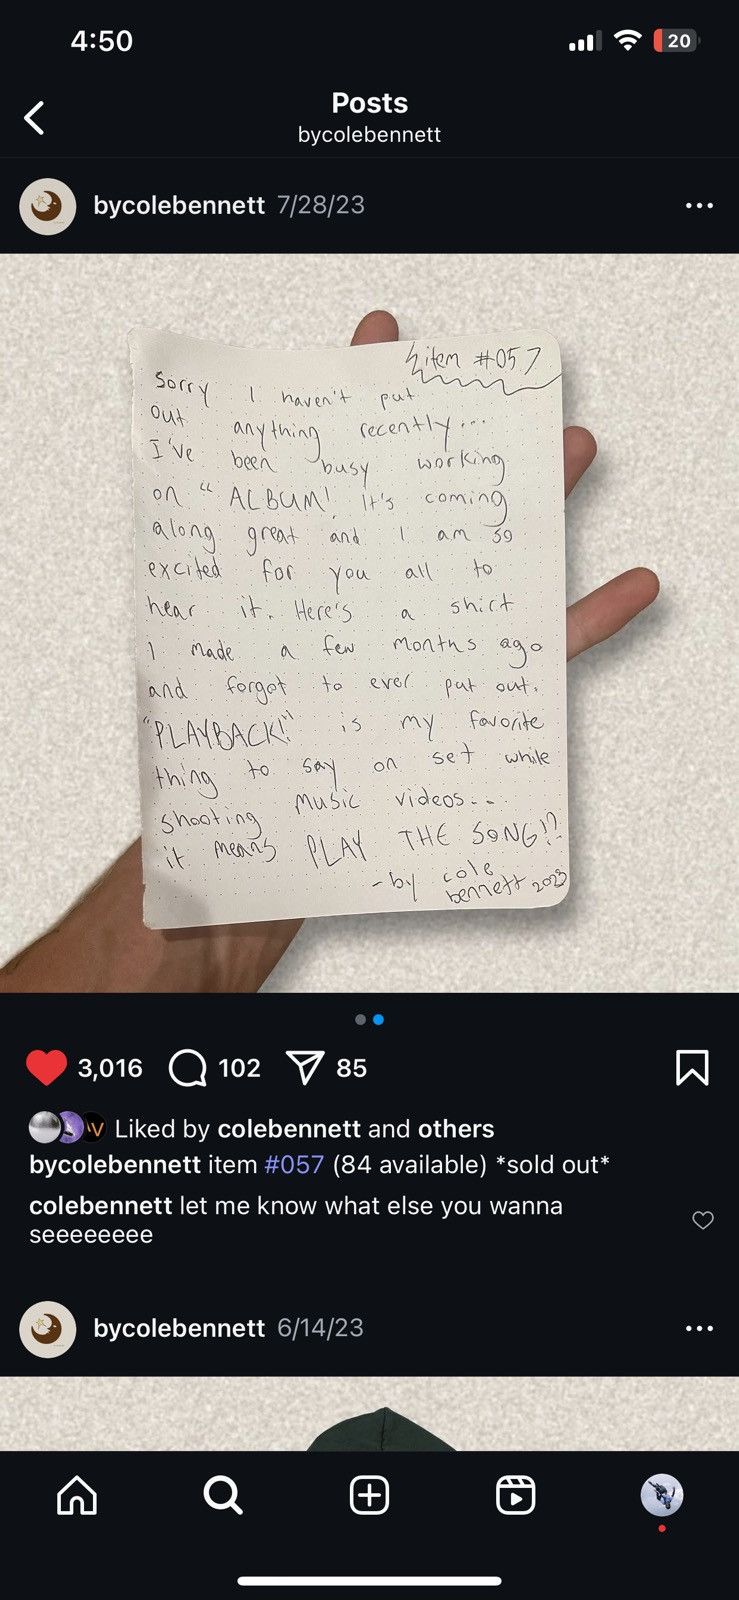 4:50
20
Posts
bycolebennett
bycolebennett 7/28/23
item #057
Sorry I haven't put
out anything recently...
I've been busy working
on "ALBUM! It's coming
along great and I am so
excited for you all to
hear it. Here's a shirt
I made a few months ago
and forgot to ever put out.
"PLAYBACK!" is my favorite
thing to say on set while
shooting music videos...
it means PLAY THE SONG!?
-by cole
bennett 2023
3,016 102 85
Liked by colebennett and others
bycolebennett item #057 (84 available) *sold out*
colebennett let me know what else you wanna
seeeeeeee
bycolebennett 6/14/23